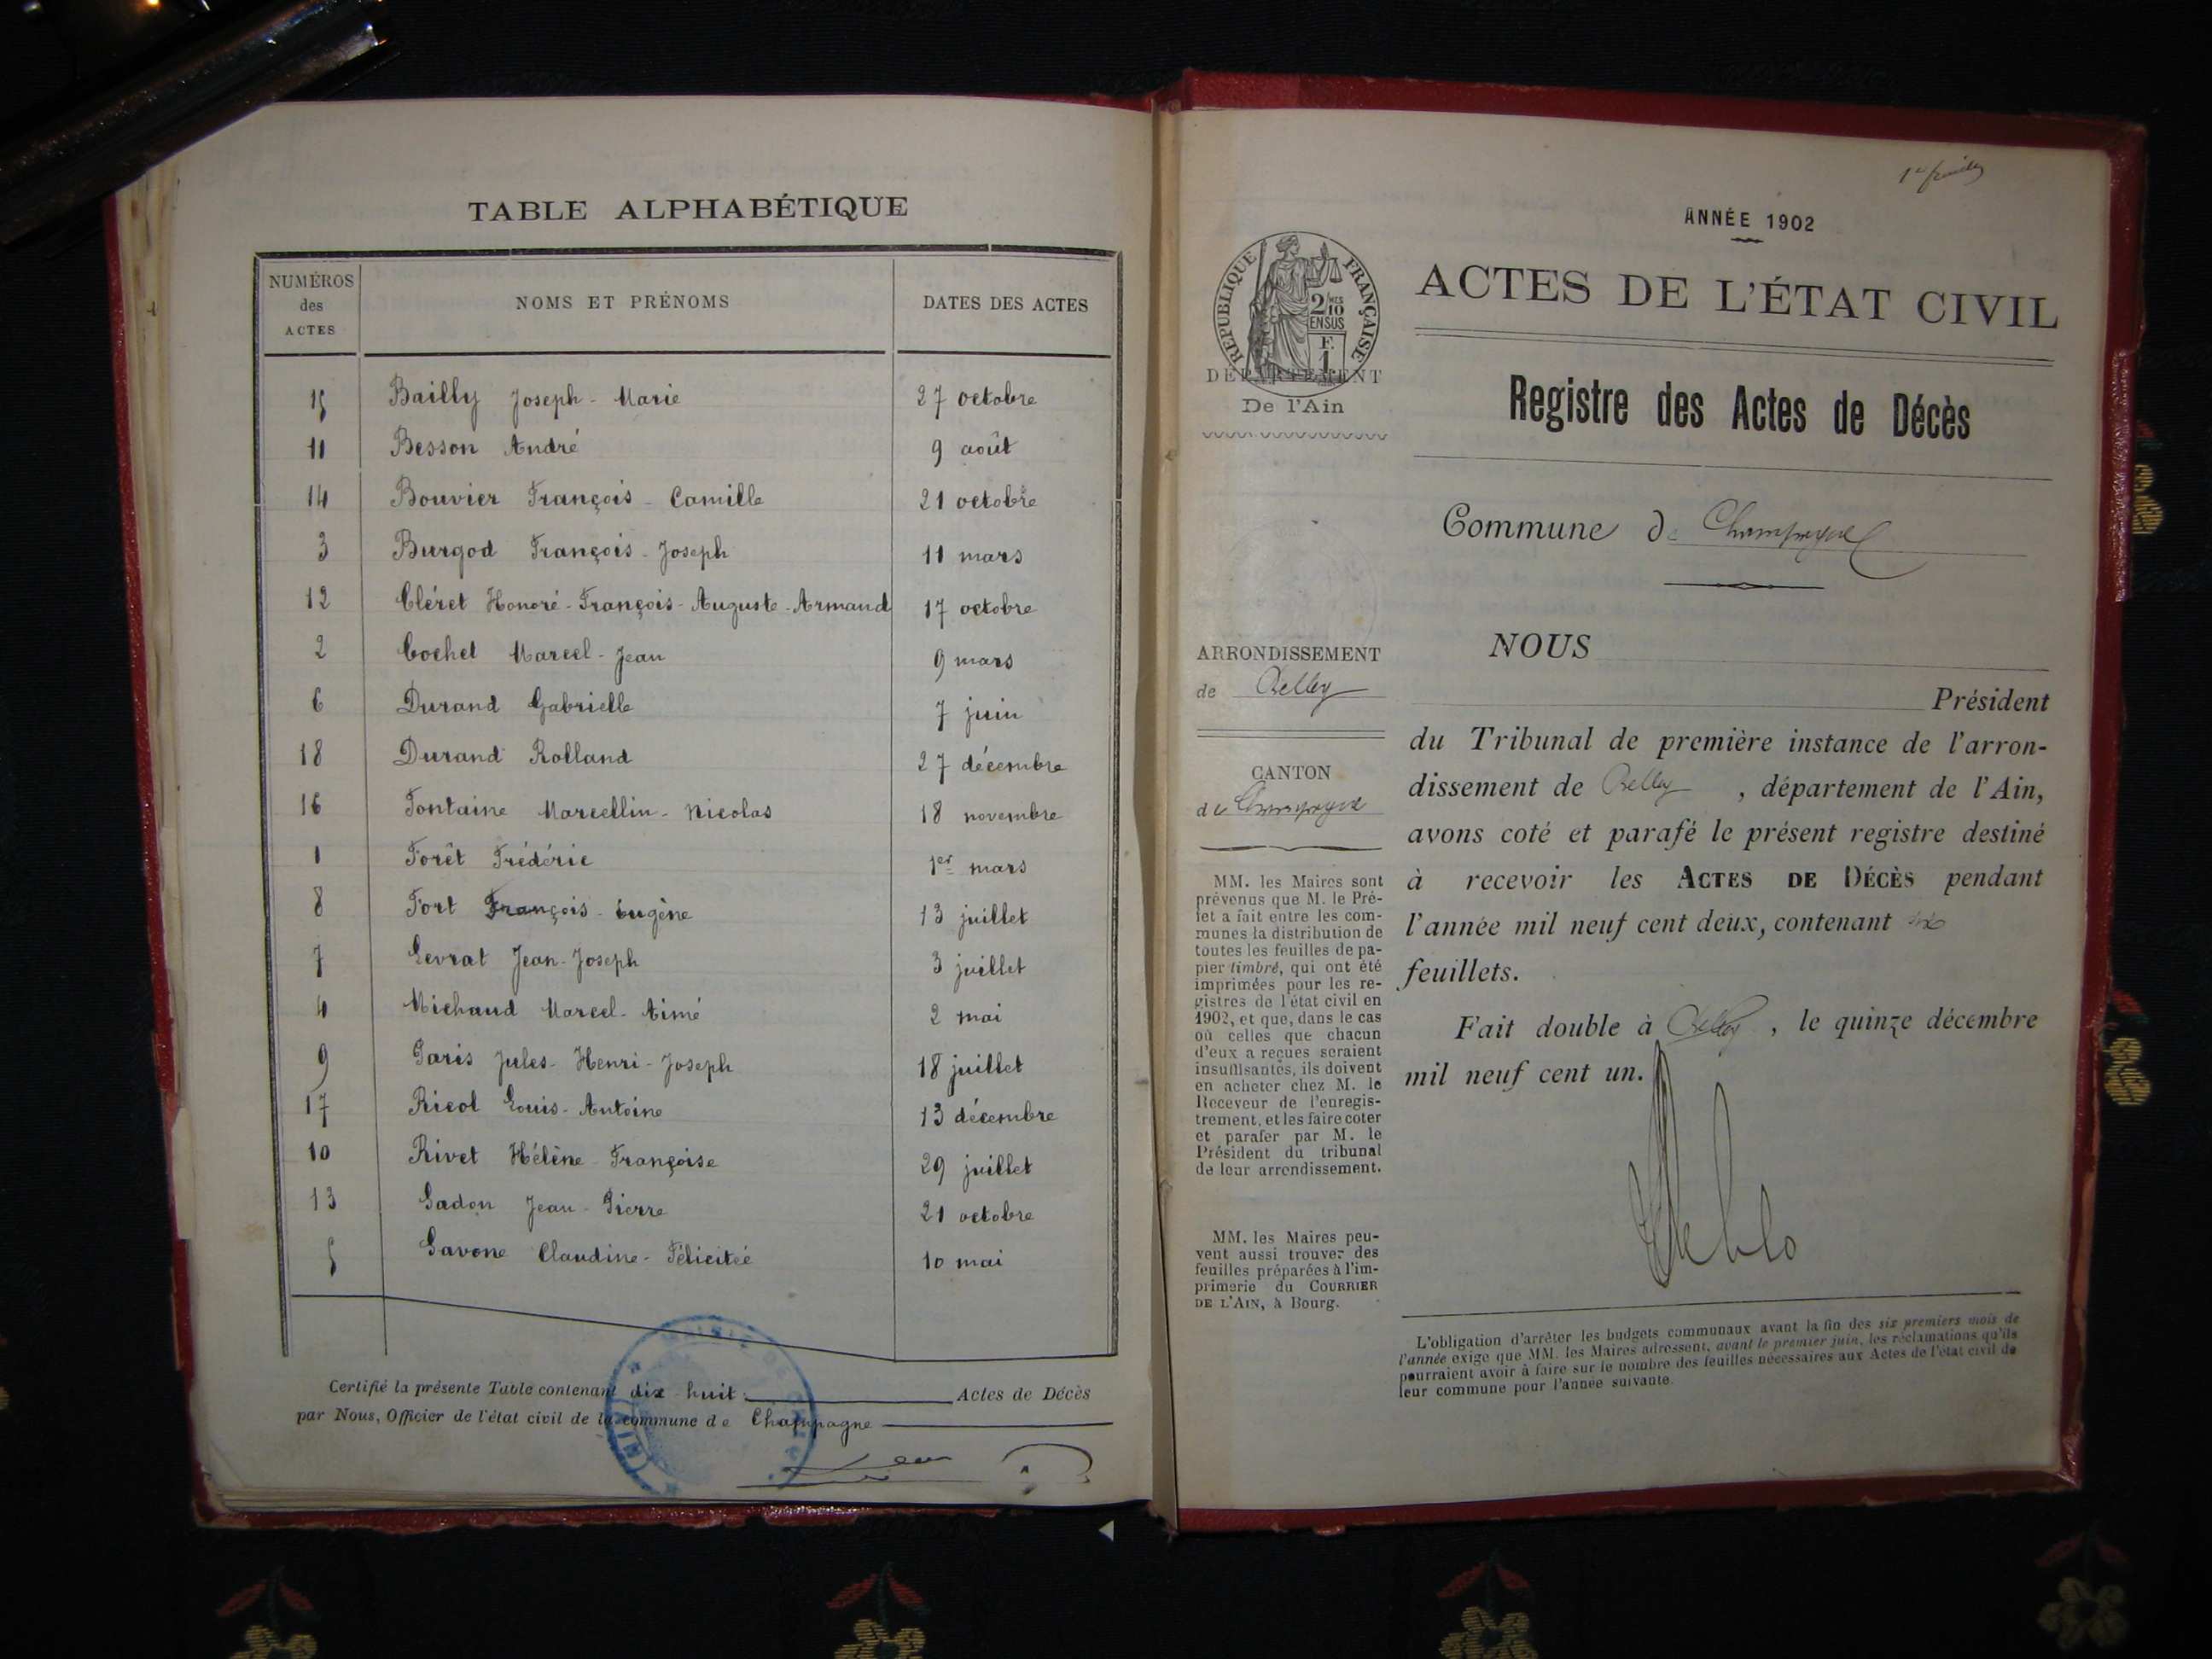 TABLE ALPHABÉTIQUE
NUMÉROS des ACTES
NOMS ET PRÉNOMS
DATES DES ACTES
15 Bailly Joseph-Marie 27 octobre
11 Besson André 9 août
14 Bouvier François-Camille 21 octobre
3 Burgod François-Joseph 11 mars
12 Cléret Honoré-François-Auguste-Armand 17 octobre
2 Cochet Marcel-Jean 9 mars
6 Durand Gabrielle 7 juin
18 Durand Rolland 27 décembre
16 Fontaine Marcellin-Nicolas 18 novembre
1 Forêt Frédéric 1er mars
8 Fort François-Eugène 13 juillet
7 Levrat Jean-Joseph 3 juillet
4 Michaud Marcel-Aimé 2 mai
9 Paris Jules-Henri-Joseph 18 juillet
17 Ricol Louis-Antoine 13 décembre
10 Rivet Hélène Françoise 29 juillet
13 Sadon Jean-Pierre 21 octobre
5 Savone Claudine-Félicitée 10 mai
Certifié la présente Table contenant dix huit Actes de Décès
par Nous, Officier de l'état civil de la commune de Champagne
1er feuillet
ANNÉE 1902
ACTES DE L'ÉTAT CIVIL
Registre des Actes de Décès
RÉPUBLIQUE FRANÇAISE
2/10 MES
EN SUS
F.
1
DÉPARTEMENT
De l'Ain
Commune de Champagne
ARRONDISSEMENT
de Belley
CANTON
de Champagne
MM. les Maires sont
prévenus que M. le Pré-
fet a fait entre les com-
munes la distribution de
toutes les feuilles de pa-
pier timbré, qui ont été
imprimées pour les re-
gistres de l'état civil en
1902, et que, dans le cas
où celles que chacun
d'eux a reçues seraient
insuffisantes, ils doivent
en acheter chez M. le
Receveur de l'enregis-
trement, et les faire coter
et parafer par M. le
Président du tribunal
de leur arrondissement.
MM. les Maires peu-
vent aussi trouver des
feuilles préparées à l'im-
primerie du COURRIER
DE L'AIN, à Bourg.
NOUS
Président
du Tribunal de première instance de l'arron-
dissement de Belley , département de l'Ain,
avons coté et parafé le présent registre destiné
à recevoir les ACTES DE DÉCÈS pendant
l'année mil neuf cent deux, contenant six
feuillets.
Fait double à Belley , le quinze décembre
mil neuf cent un.
L'obligation d'arrêter les budgets communaux avant la fin des six premiers mois de
l'année exige que MM. les Maires adressent, avant le premier juin, les réclamations qu'ils
pourraient avoir à faire sur le nombre des feuilles nécessaires aux Actes de l'état civil de
leur commune pour l'année suivante.